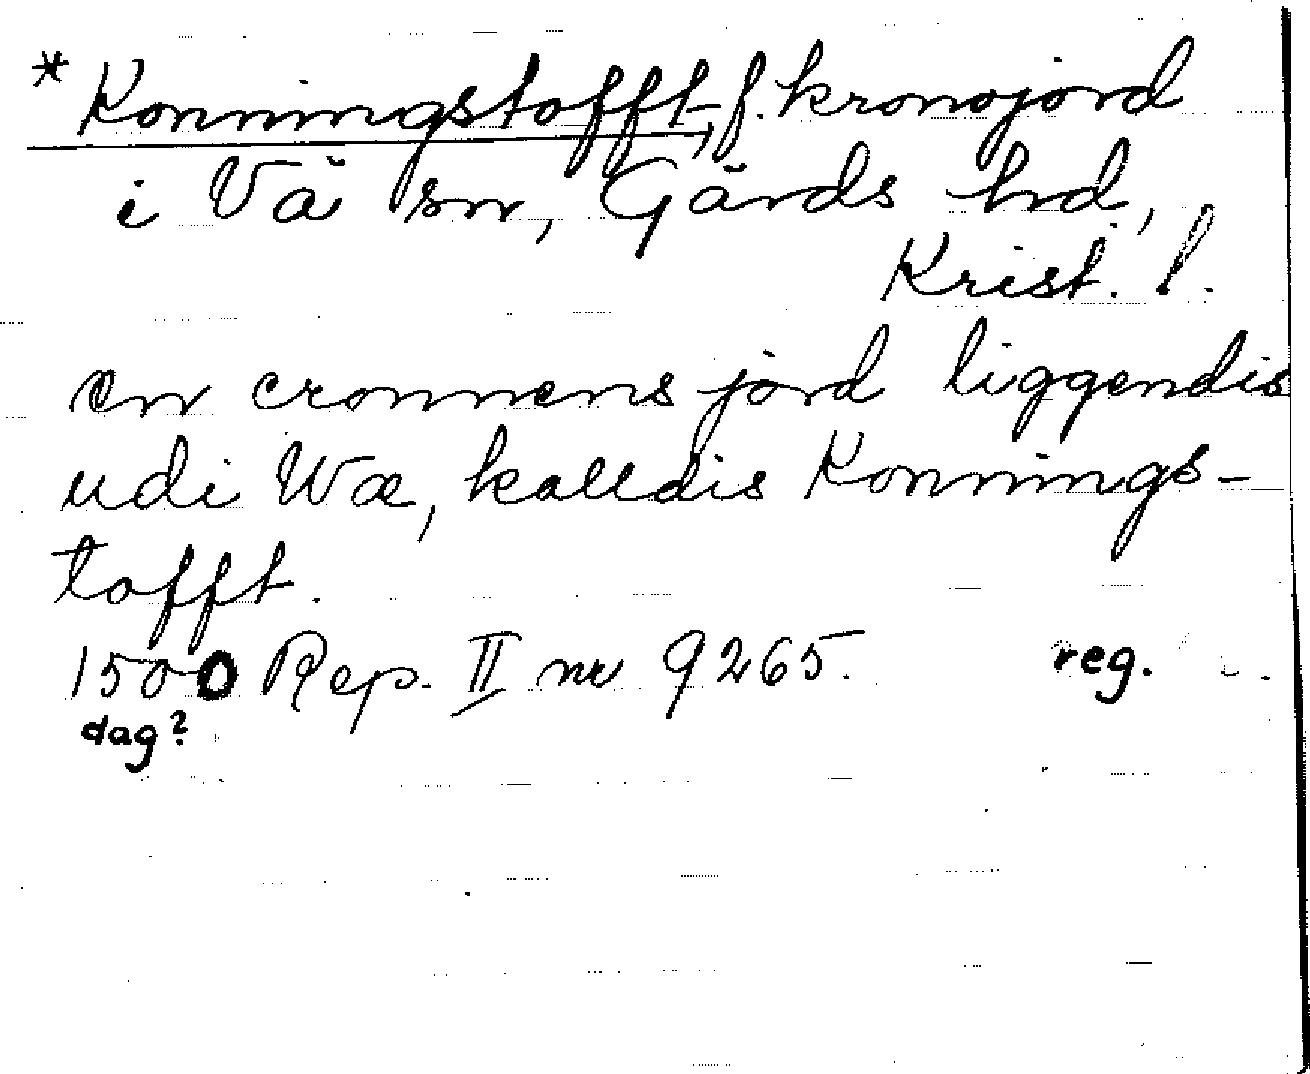 * Konningstofft, f. kronojord
i Vä sn, Gärds hd,
Krist. l.
en cronnens jord liggendis
udi Wæ, kalldis Konnings-
tofft.
1500 Rep. II nr 9265. reg.
dag?